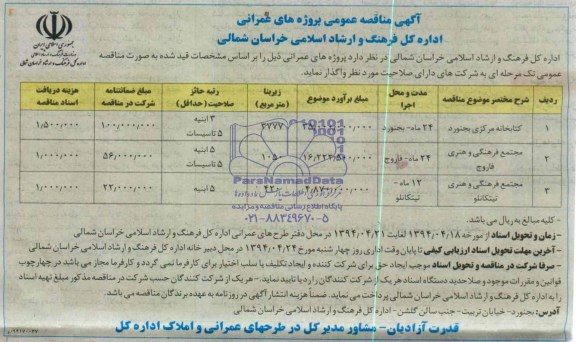 آگهی مناقصه عمومی پروژه های عمرانی
اداره کل فرهنگ و ارشاد اسلامی خراسان شمالی
جمهوری اسلامی ایران
وزارت فرهنگ و ارشاد اسلامی
اداره کل فرهنگ و ارشاد خراسان شمالی
اداره کل فرهنگ و ارشاد اسلامی خراسان شمالی در نظر دارد پروژه های عمرانی ذیل را بر اساس مشخصات قید شده به صورت مناقصه
عمومی تک مرحله ای به شرکت های دارای صلاحیت مورد نظر واگذار نماید.
ردیف شرح مختصر موضوع مناقصه مدت و محل اجرا مبلغ برآورد موضوع زیربنا (متر مربع) رتبه حائز صلاحیت (حداقل) مبلغ ضمانتنامه شرکت در مناقصه هزینه دریافت اسناد مناقصه
۱ کتابخانه مرکزی بجنورد ۲۴ ماه- بجنورد ۶۷۷۷ ۳ ابنیه ۵ تاسیسات ۱۰۰,۰۰۰,۰۰۰ ۱,۵۰۰,۰۰۰
۲ مجتمع فرهنگی و هنری فاروج ۲۴ ماه- فاروج ۱۶,۲۲۲,۵۰۰,۰۰۰ ۱۰۵۰ ۵ ابنیه ۵ تاسیسات ۵۶,۰۰۰,۰۰۰ ۱,۰۰۰,۰۰۰
۳ مجتمع فرهنگی و هنری تیتکانلو ۱۲ ماه - تیتکانلو ۵ ابنیه ۲۲,۰۰۰,۰۰۰ ۱,۰۰۰,۰۰۰
ParsNamadData
پایگاه اطلاع رسانی مناقصه و مزایده
۰۲۱-۸۸۳۴۹۶۷۰-۵
- کلیه مبالغ به ریال می باشد.
- زمان و تحویل اسناد از مورخه ۱۳۹۴/۰۴/۱۸ لغایت ۱۳۹۴/۰۴/۲۱ در محل دفتر طرح های عمرانی اداره کل فرهنگ و ارشاد اسلامی خراسان شمالی
- آخرین مهلت تحویل اسناد ارزیابی کیفی تا پایان وقت اداری روز چهارشنبه مورخ ۱۳۹۴/۰۴/۲۴ در محل دبیرخانه اداره کل فرهنگ و ارشاد اسلامی خراسان شمالی
- صرفا شرکت در مناقصه و تحویل اسناد موجب ایجاد حق برای شرکت کننده و ایجاد تکلیف یا سلب اختیار برای کارفرما نمی گردد و کارفرما مجاز می باشد در چهارچوب
قوانین و مقررات موجود و صلاحدید دستگاه اسناد هر یک از شرکت کنندگان را رد یا تایید نماید. - هر یک از شرکت کنندگان حسب شرکت در مناقصه مذکور مبلغ تهیه اسناد
را به اداره کل فرهنگ و ارشاد اسلامی خراسان شمالی پرداخت می نماید. ضمناً هزینه انتشار آگهی در روزنامه به عهده برندگان مناقصه می باشد.
آدرس: بجنورد- خیابان تربیت- جنب سالن گلشن- اداره کل فرهنگ و ارشاد اسلامی خراسان شمالی
قدرت آزادیان- مشاور مدیر کل در طرحهای عمرانی و املاک اداره کل